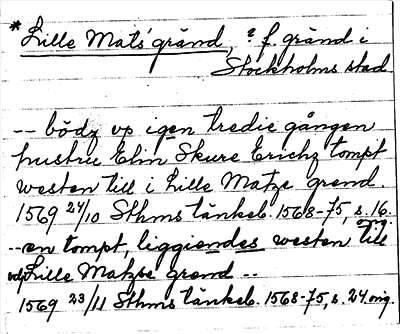 * Lille Mats' gränd, ? f. gränd i
Stockholms stad
-- bödz vp igen tredie gången
hustru Elin Skure Erichz tompt
westen till i Lille Matze grend.
1569 24/10 Sthms tänkeb. 1568-75, s. 16.
-- en tompt, liggiendes westen till
vdj Lille Matzse grend --
1569 23/11 Sthms tänkeb. 1568-75, s. 24. orig.